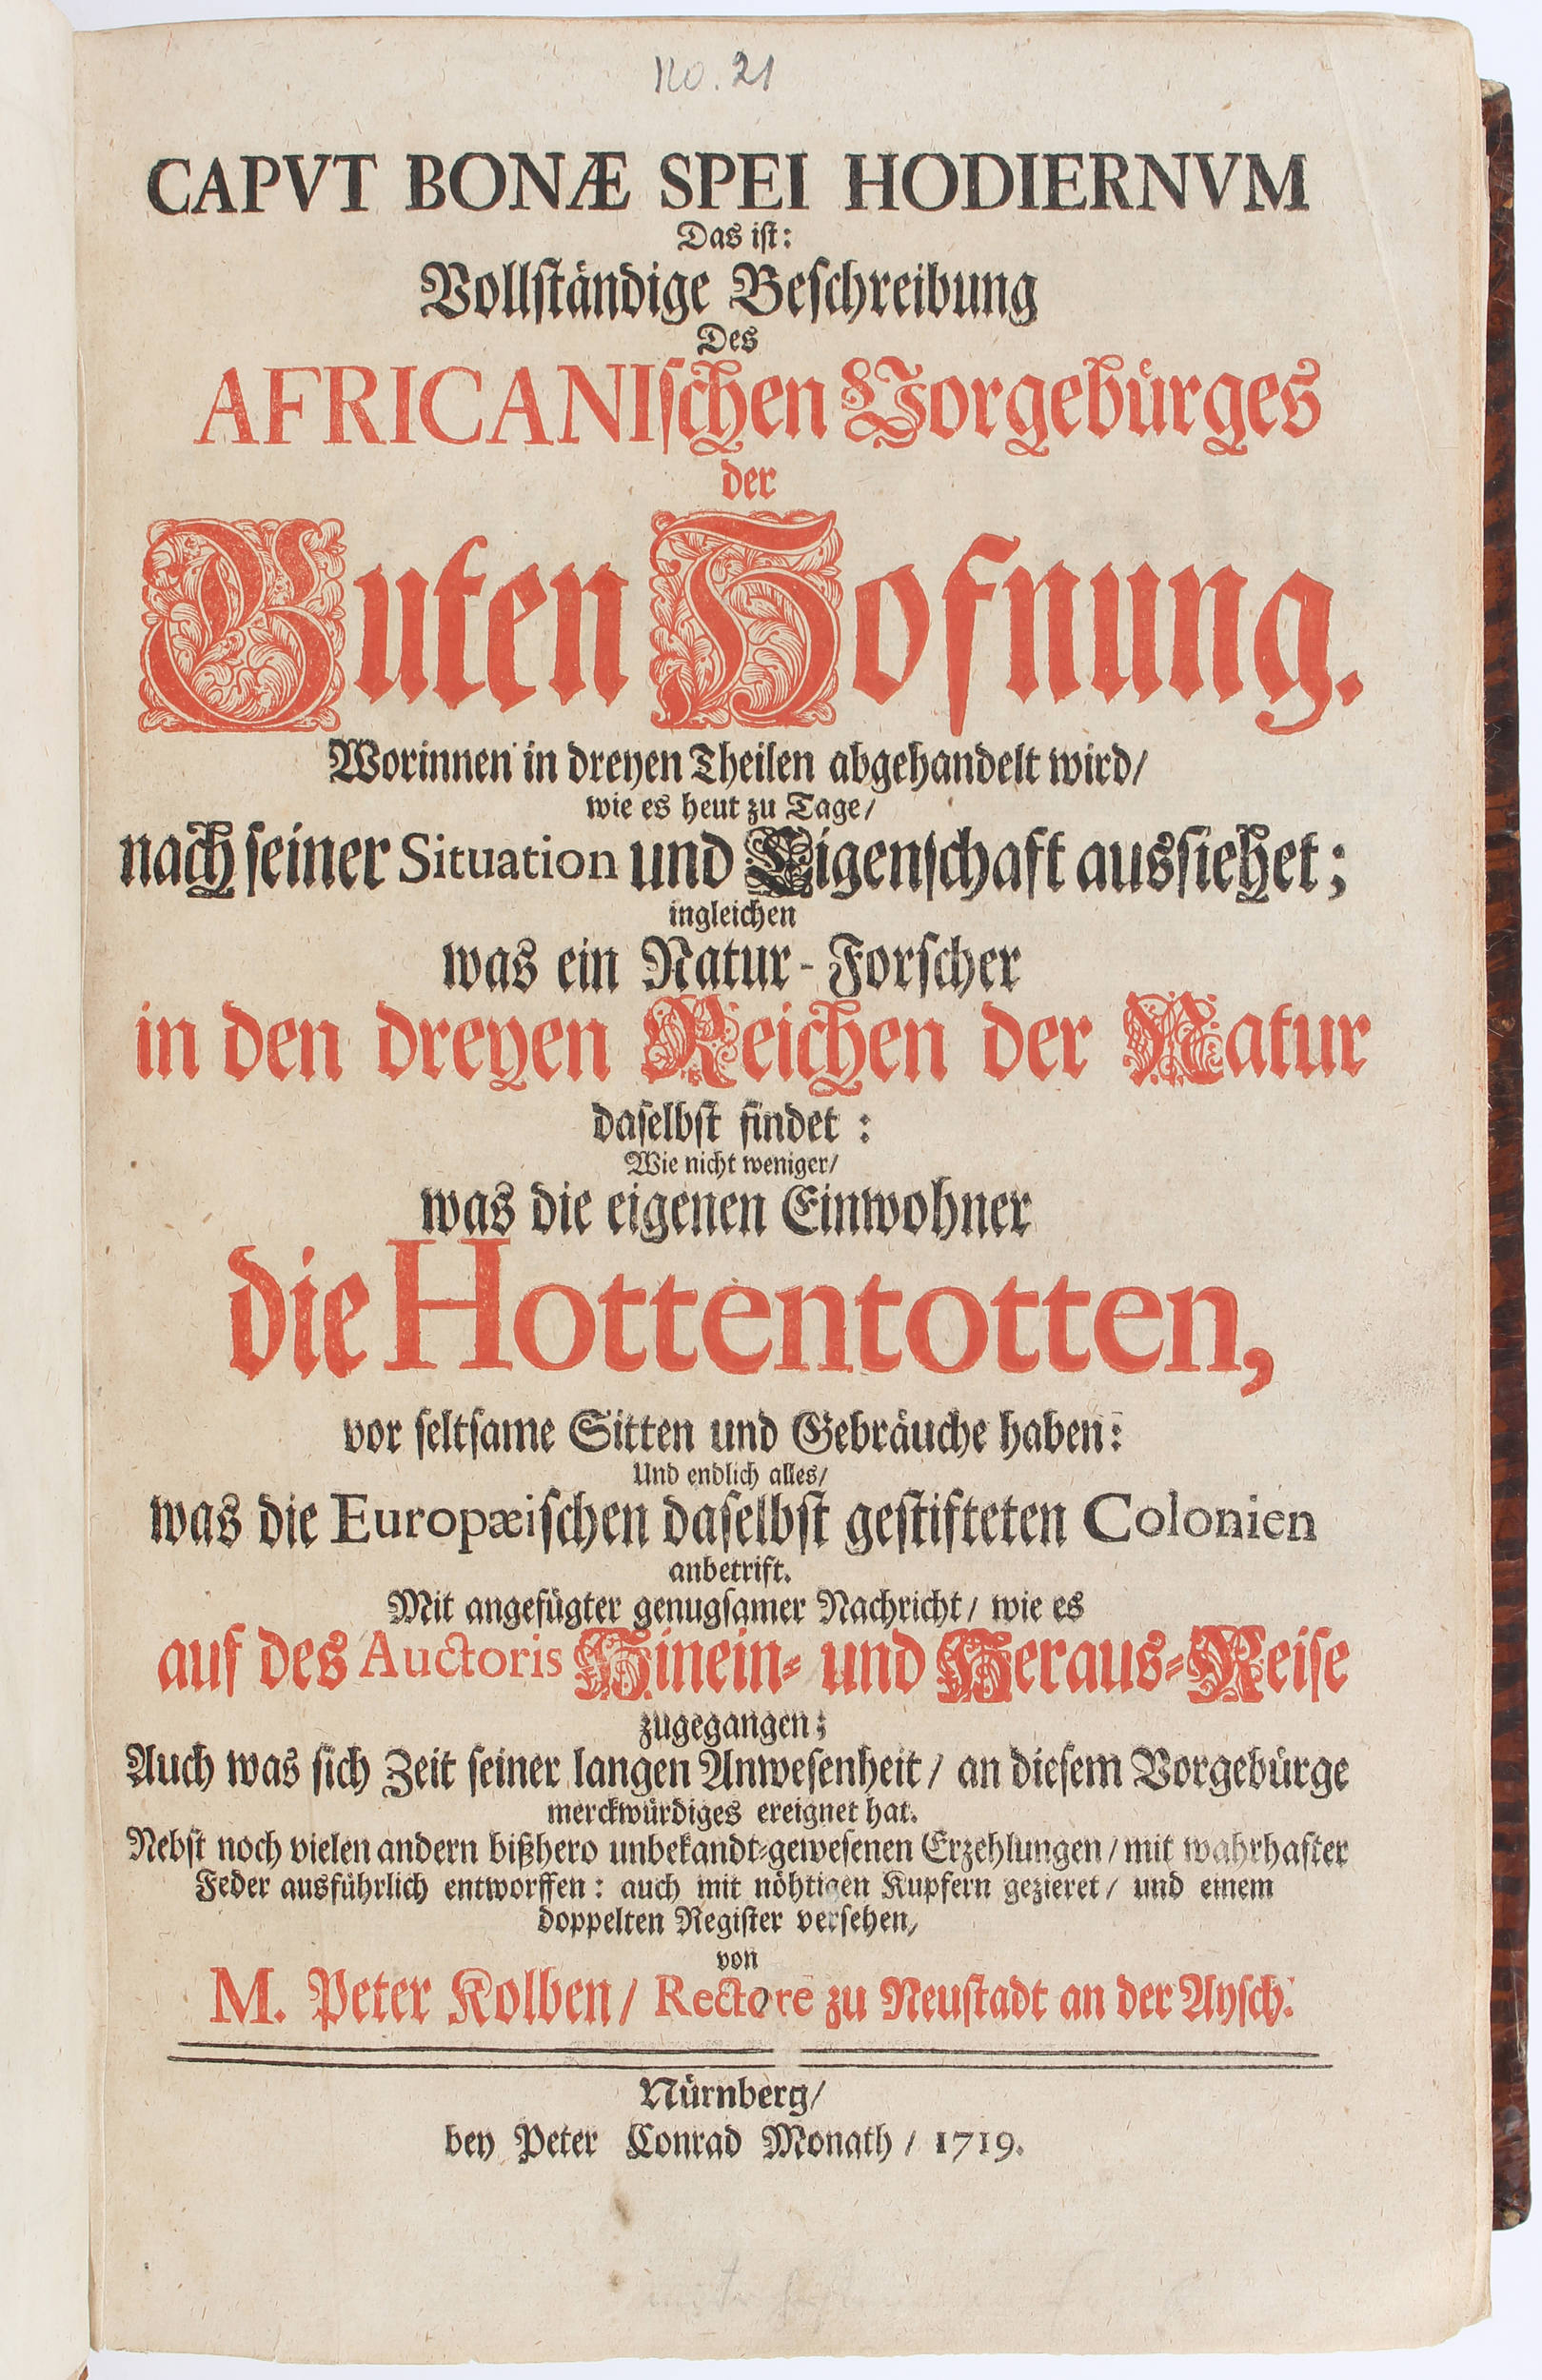 no. 21
CAPVT BONÆ SPEI HODIERNVM
Das ist:
Vollständige Beschreibung
Des
AFRICANIschen Vorgebürges
der
Guten Hofnung.
Worinnen in dreyen Theilen abgehandelt wird/
wie es heut zu Tage/
nach seiner Situation und Eigenschaft aussiehet;
ingleichen
was ein Natur-Forscher
in den dreyen Reichen der Natur
daselbst findet:
Wie nicht weniger/
was die eigenen Einwohner
die Hottentotten,
vor seltsame Sitten und Gebräuche haben:
Und endlich alles/
was die Europæischen daselbst gestifteten Colonien
anbetrift.
Mit angefügter genugsamer Nachricht/ wie es
auf des Auctoris Hinein- und Heraus-Reise
zugegangen;
Auch was sich Zeit seiner langen Anwesenheit/ an diesem Vorgebürge
merckwürdiges ereignet hat.
Nebst noch vielen andern bißhero unbekandt-gewesenen Erzehlungen/ mit wahrhafter
Feder ausführlich entworffen: auch mit nöhtigen Kupfern gezieret/ und einem
doppelten Register versehen,
von
M. Peter Kolben/ Rectore zu Neustadt an der Aysch.
Nürnberg/
bey Peter Conrad Monath/ 1719.